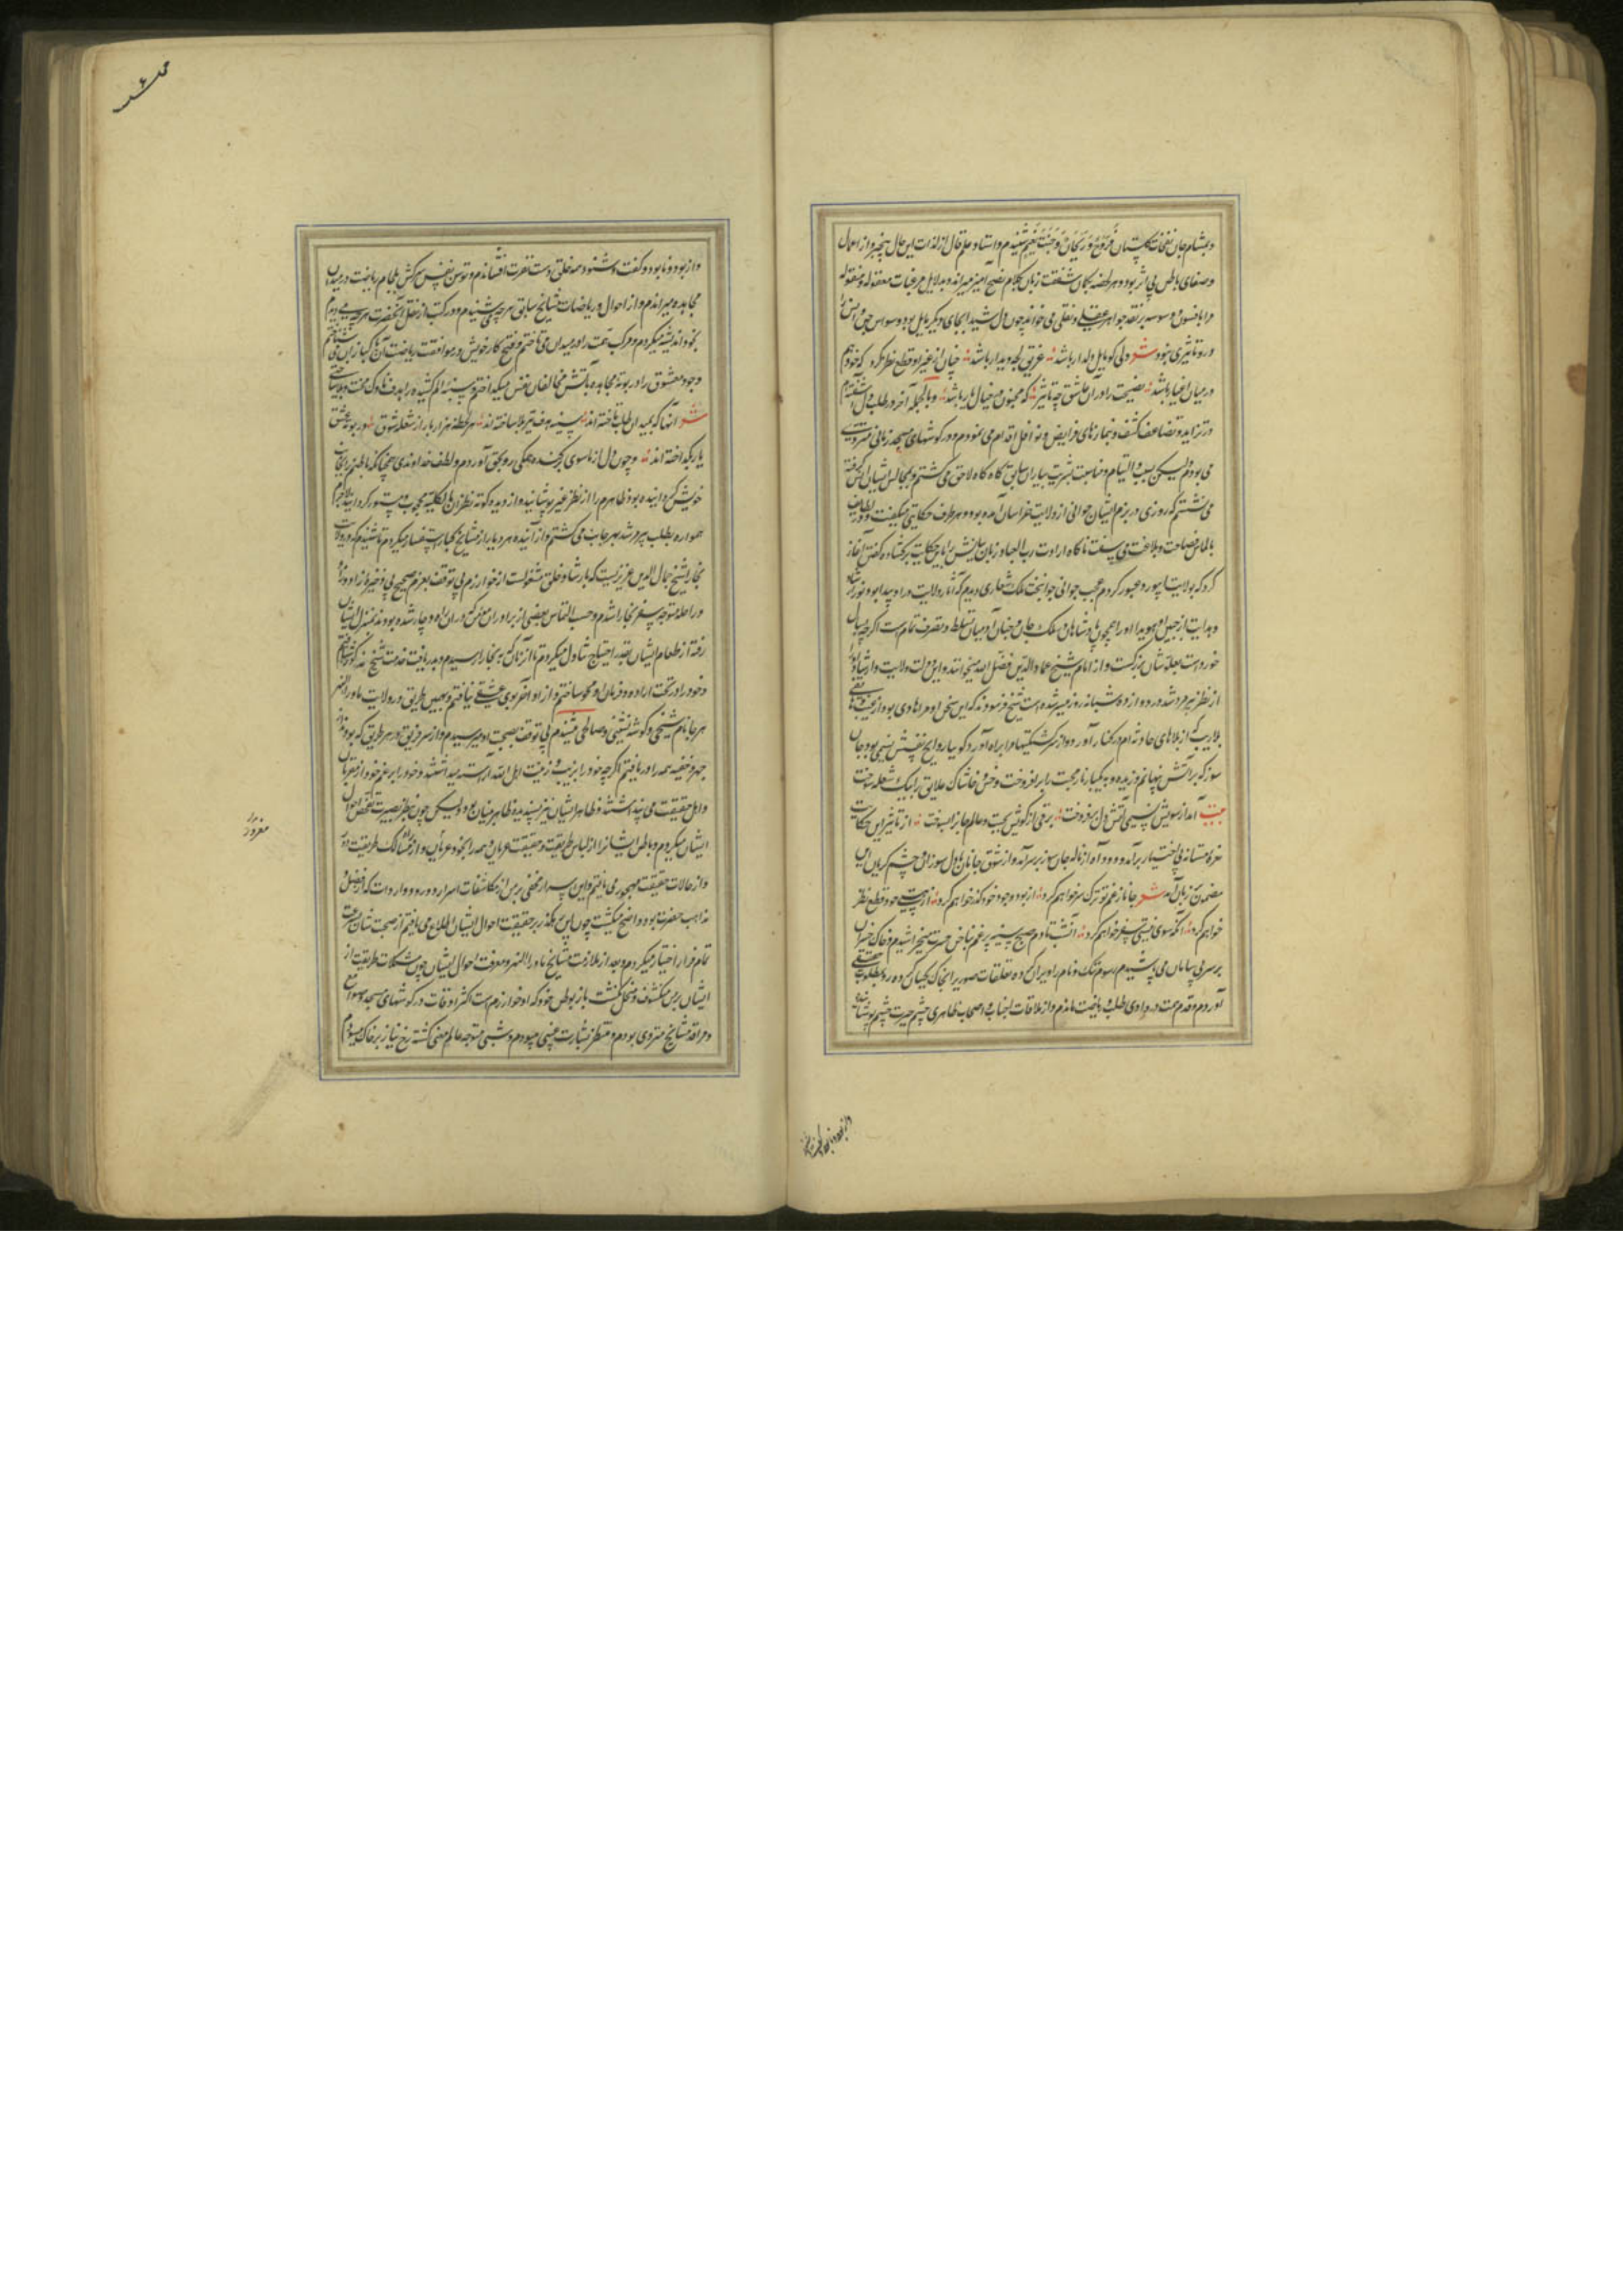 وبمشام جان نفحات گلستان فَرَوْحٌ وَرَیْحَانٌ وَجَنَّتُ نَعِیْمٍ شنیدم و استاد علم قال از لذات این حال بیخبر و از اعمال
وصفای باطن بی اثر بود و هر لحظه بکمان شفقت زبان بکلام نصح آمیز میراند و بدلایل مرغبات معقوله و منقوله
مرا بافسون و وسوسه بر نقد جواهر عقلی و نقلی می خواند چون دل شیدا بجای دیگر مایل بود وسواس جنی و انس را
درو تاثیری نبود شعر دلی کو مایل دلدار باشد غریق لجه دیدار باشد چنان از غیر او قطع نظر کرد که خود هم
در میان اغیار باشد نصیحت را در آن عاشق چه تاثیر که مجنون خیال یار باشد و بالجمله آخر در طلب دل آشفته‌ام
در تزاید و تضاعف گشت و بنمازهای فرایض و نوافل اقدام می نمودم و در گوشهای مسجد زمانی منزوی
می بودم ولیکن بسبب التیام و مناسبت بشریت بیاران سابق گاه گاه لاحق می گشتم و بمجالس ایشان گرفته
می نشستم که روزی در بزم ایشان جوانی از ولایت خراسان آمده بود و هر طرف حکایتی میگفت و در لطایف
بالماس فصاحت و بلاغت می سفت ناگاه ارادت رب العباد زبان بیانش را باین حکایت برگشاد و گفتن آغاز
کرد که بولایت اسپور و عبور کردم عجب جوانی جوانبخت ملک شعاری دیدم که آثار ولایت در او پیدا بود و نور ارشاد
و هدایت از جبین او هویدا اورا همچون پادشاهان ملک جان و جنان آدمیان تسلط و تصرف تمام است اگرچه بسال
خورد است بعلو شان بزرگست و از امام شیخ عماد الدین فضل الله میخوانند و این دولت ولایت و ارشاد او را
از نظر پیر مرد شد در دوازده شبانه روز میسر شده است شیخ فرسوود ند که این سخن او مرا هادی بود از غیب
بلاریب که از بلاهای حادثه ام در کنار آورد و از سرگشتگیها مرا براه آورد گویا روایح نفسش نسیمی بود جان
سوز که بر آتش پنهانم وزیده و به یکبار نار محبت را برافروخت و خس و خاشاک علایق را بیک شعله سوخت
بیت آمد از سویش نسیمی آتش دل برفروخت برقی از کویش بجست و عالم جانرا بسوخت از تاثیر این حکایت
نعره مستانه بی اختیار برآمد و دود آه از ناله جان سوز بر سر آمد و از شوق جانان با دل سوزان و چشم گریان این
مضمون بزبان آمد شعر جانا ز غم تو ترک سر خواهم کرد از بود و وجود خود گذر خواهم کرد از هستی خود قطع نظر
خواهم کرد آنگه سوی نیستی سفر خواهم کرد آنشب تا دم صبح سینه پر غم بناخن حسرت میخراشیدم و خاک حسرت
بر سر بی سامان می پاشیدم رسوم ننگ و نام را ویران کرده تعلقات صوری را بخاک یکسان کرده رو بمطلوب حقیقی
آوردم و قدم همت در وادی طلب و ریاضت ماندم و از ملاقات احباب و اصحاب ظاهری چشم حیرت چشم پوشانیده
واز بود و نابود و گفت
واز بود و نابود و گفت و شنود همه خلق دست نفرت افشاندم و توسن نفس سرکش بلجام ریاضت در میدان
مجاهده میراندم و از احوال و ریاضات مشایخ سابق هرچه می شنیدم و در کتب از نقل آنحضرت هرچه می دیدم
بخود اندیشه میکردم و مرکب همت را در میدان می تاختم و فتح کار خویش در موافقت ریاضت آن پاکبازان می شناختم
وجود معشوق را در بوته مجاهده بآتش مخالفان نفس میگداختم و سینه الم کشیده را هدف ناوک محنت و بلا
شعر آنها که بمیدان طلب تاخته اند سینه هدف تیر بلا ساخته اند هر لحظه هزار بار از شعله شوق در بوته عشق
یار بگداخته اند و چون دل از ماسوی برکنده همگی رو بحق آوردم و لطف خداوندی همچنانکه باطنم را بجانب
خویش گردانیده بود ظاهرم را از نظر غیر پوشانید و از دیده کوته نظران بالکلیه محجوب و مستور گردانید لاجرم
همواره بطلب پیر و مرشد بهر جانب می گشتم و از آینده هر دیار از مشایخ کبار استفسار میکردم تا شنیدم که در ولایت
بخارا شیخ جمال الدین عزیزیست که بارشاد خلق مشغولست از خوارزم بی توقف بعزم صحیح بی ذخیره زاد و راحله
و راحله متوجه سفر بخارا شدم و حسب التماس بعضی از برادران مؤمن که در آن راه دوچار شده بودند بمنزل ایشان
رفته از طعام ایشان بقدر احتیاج تناول میکردم تا از آن که به بخارا رسیدم و بدریافت خدمت شیخ مذکور شتافتم
و خود را در تحت اراده و فرمان او محو ساختم و از او انفر بوی عشقی نیافتم و بهمین طریق در ولایت ماوراء النهر
هر جا نام شیخی و گوشه نشینی و صالحی شنیدم بی توقف بصحبت او میرسیدم و از سر فریق و هر طریق که بودند از
جهر و خفیه همه را دریافتم اگرچه خود را بزیب و زینت اهل الله آراسته میدانستند و خود را بزعم خود از مقربان
و اهل حقیقت می پنداشتند و ظاهر ایشان نیز پسندیده ظاهربینان بود ولیکن چون بنظر بصیرت تفحص احوال
ایشان میکردم و باطن ایشانرا از لباس طریقت و حقیقت عریان و همه را بخود عریان و از مسالک طریقت دور
و از حالات حقیقت مهجور می یافتم و این اسرار مخفی بر من از مکاشفات اسرار و ورود واردات که از فضل
مذاهب حضرت بود واضح میگشت چون این بنده بر حقیقت احوال ایشان اطلاع می یافتم از صحبت شان بسرعت
تمام فرار اختیار میکردم و بعد از ملازمت مشایخ ماوراء النهر و معرفت احوال ایشان چون مشکلات طریقت از
ایشان بر من مکشوف و منحل نگشت باز بوطن خود که او خوارزم است اکثر اوقات در گوشهای مسجد و صوامع
و مراقد مشایخ منزوی بودم و منتظر بشارت غیبی میبودم و شبی متوجه عالم معنی گشته رخ نیاز بر خاک میسودم